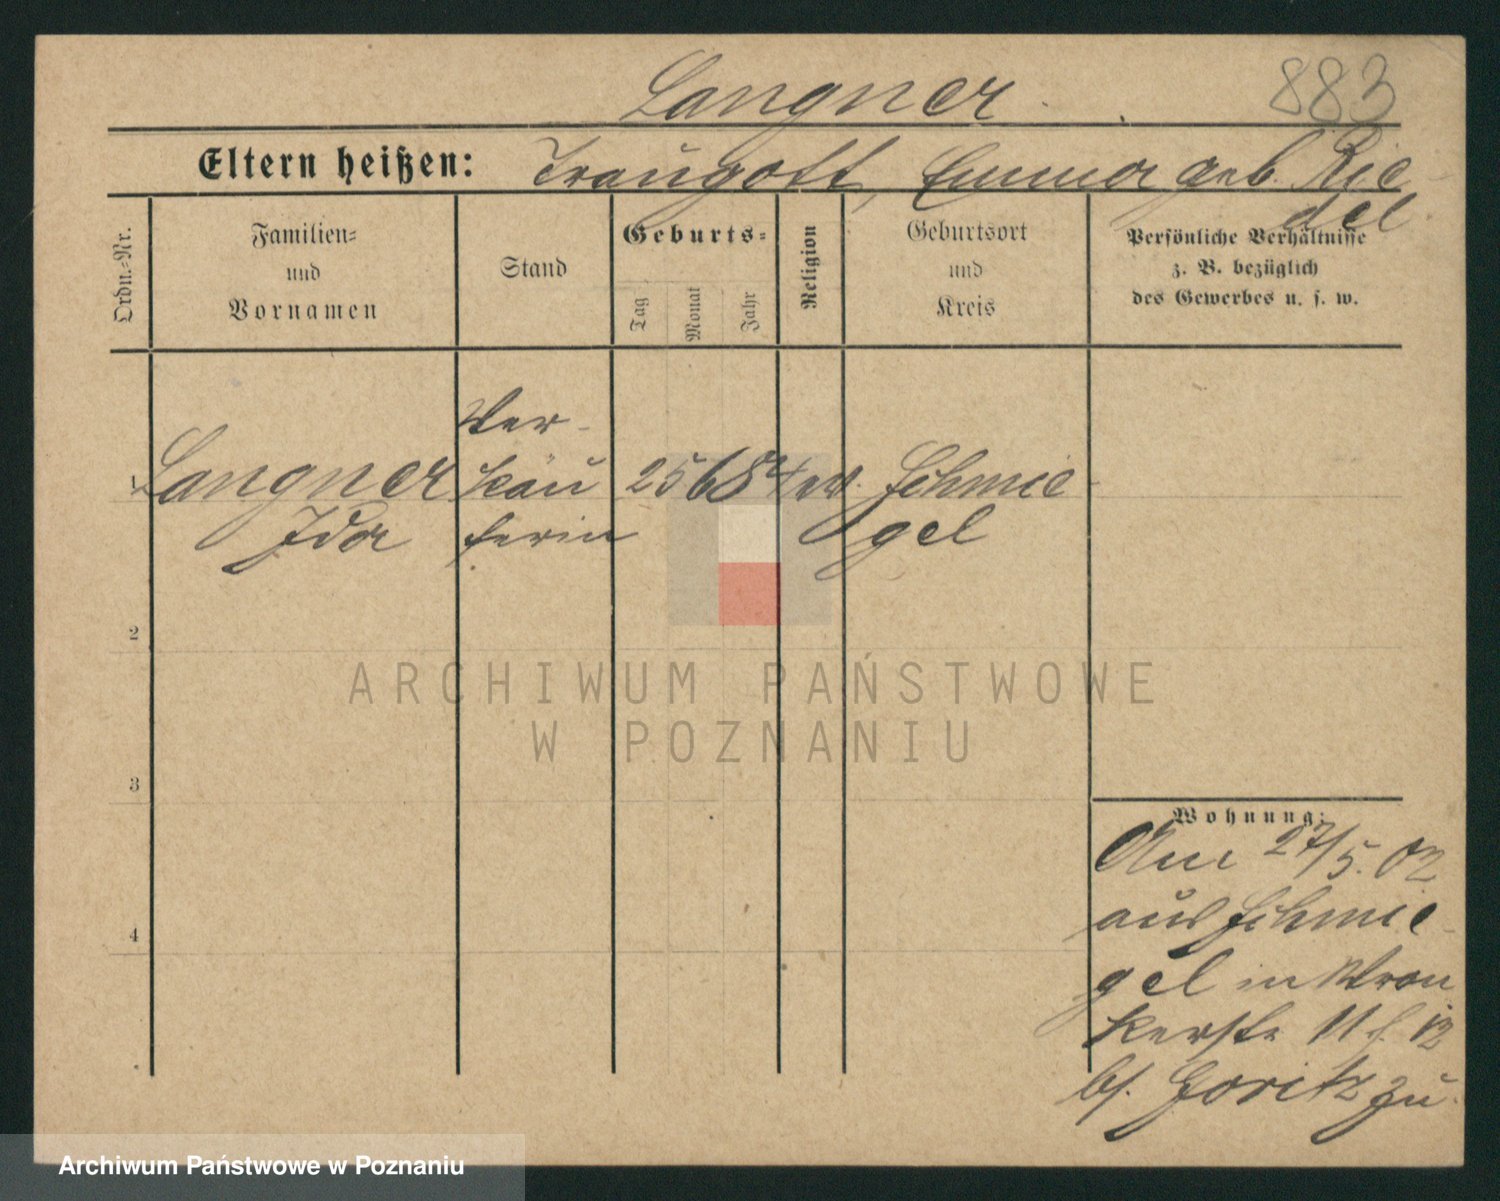 Langner. 883
Eltern heißen: Traugott, Emma geb. Rie-
del
Ordn.-Nr.
Familien-
und
Vornamen
Stand
Geburts-
Tag
Monat
Jahr
Religion
Geburtsort
und
Kreis
Persönliche Verhältnisse
z. B. bezüglich
des Gewerbes u. s. w.
1
Langner
Ida
Ver-
käu
ferin
25 6 84 ev. Schmie-
gel
2
3
4
Wohnung:
Am 27/5. 02
aus Schmie-
gel in Wron
kerstr 11
bei zu.
ARCHIWUM PAŃSTWOWE
W POZNANIU
Archiwum Państwowe w Poznaniu